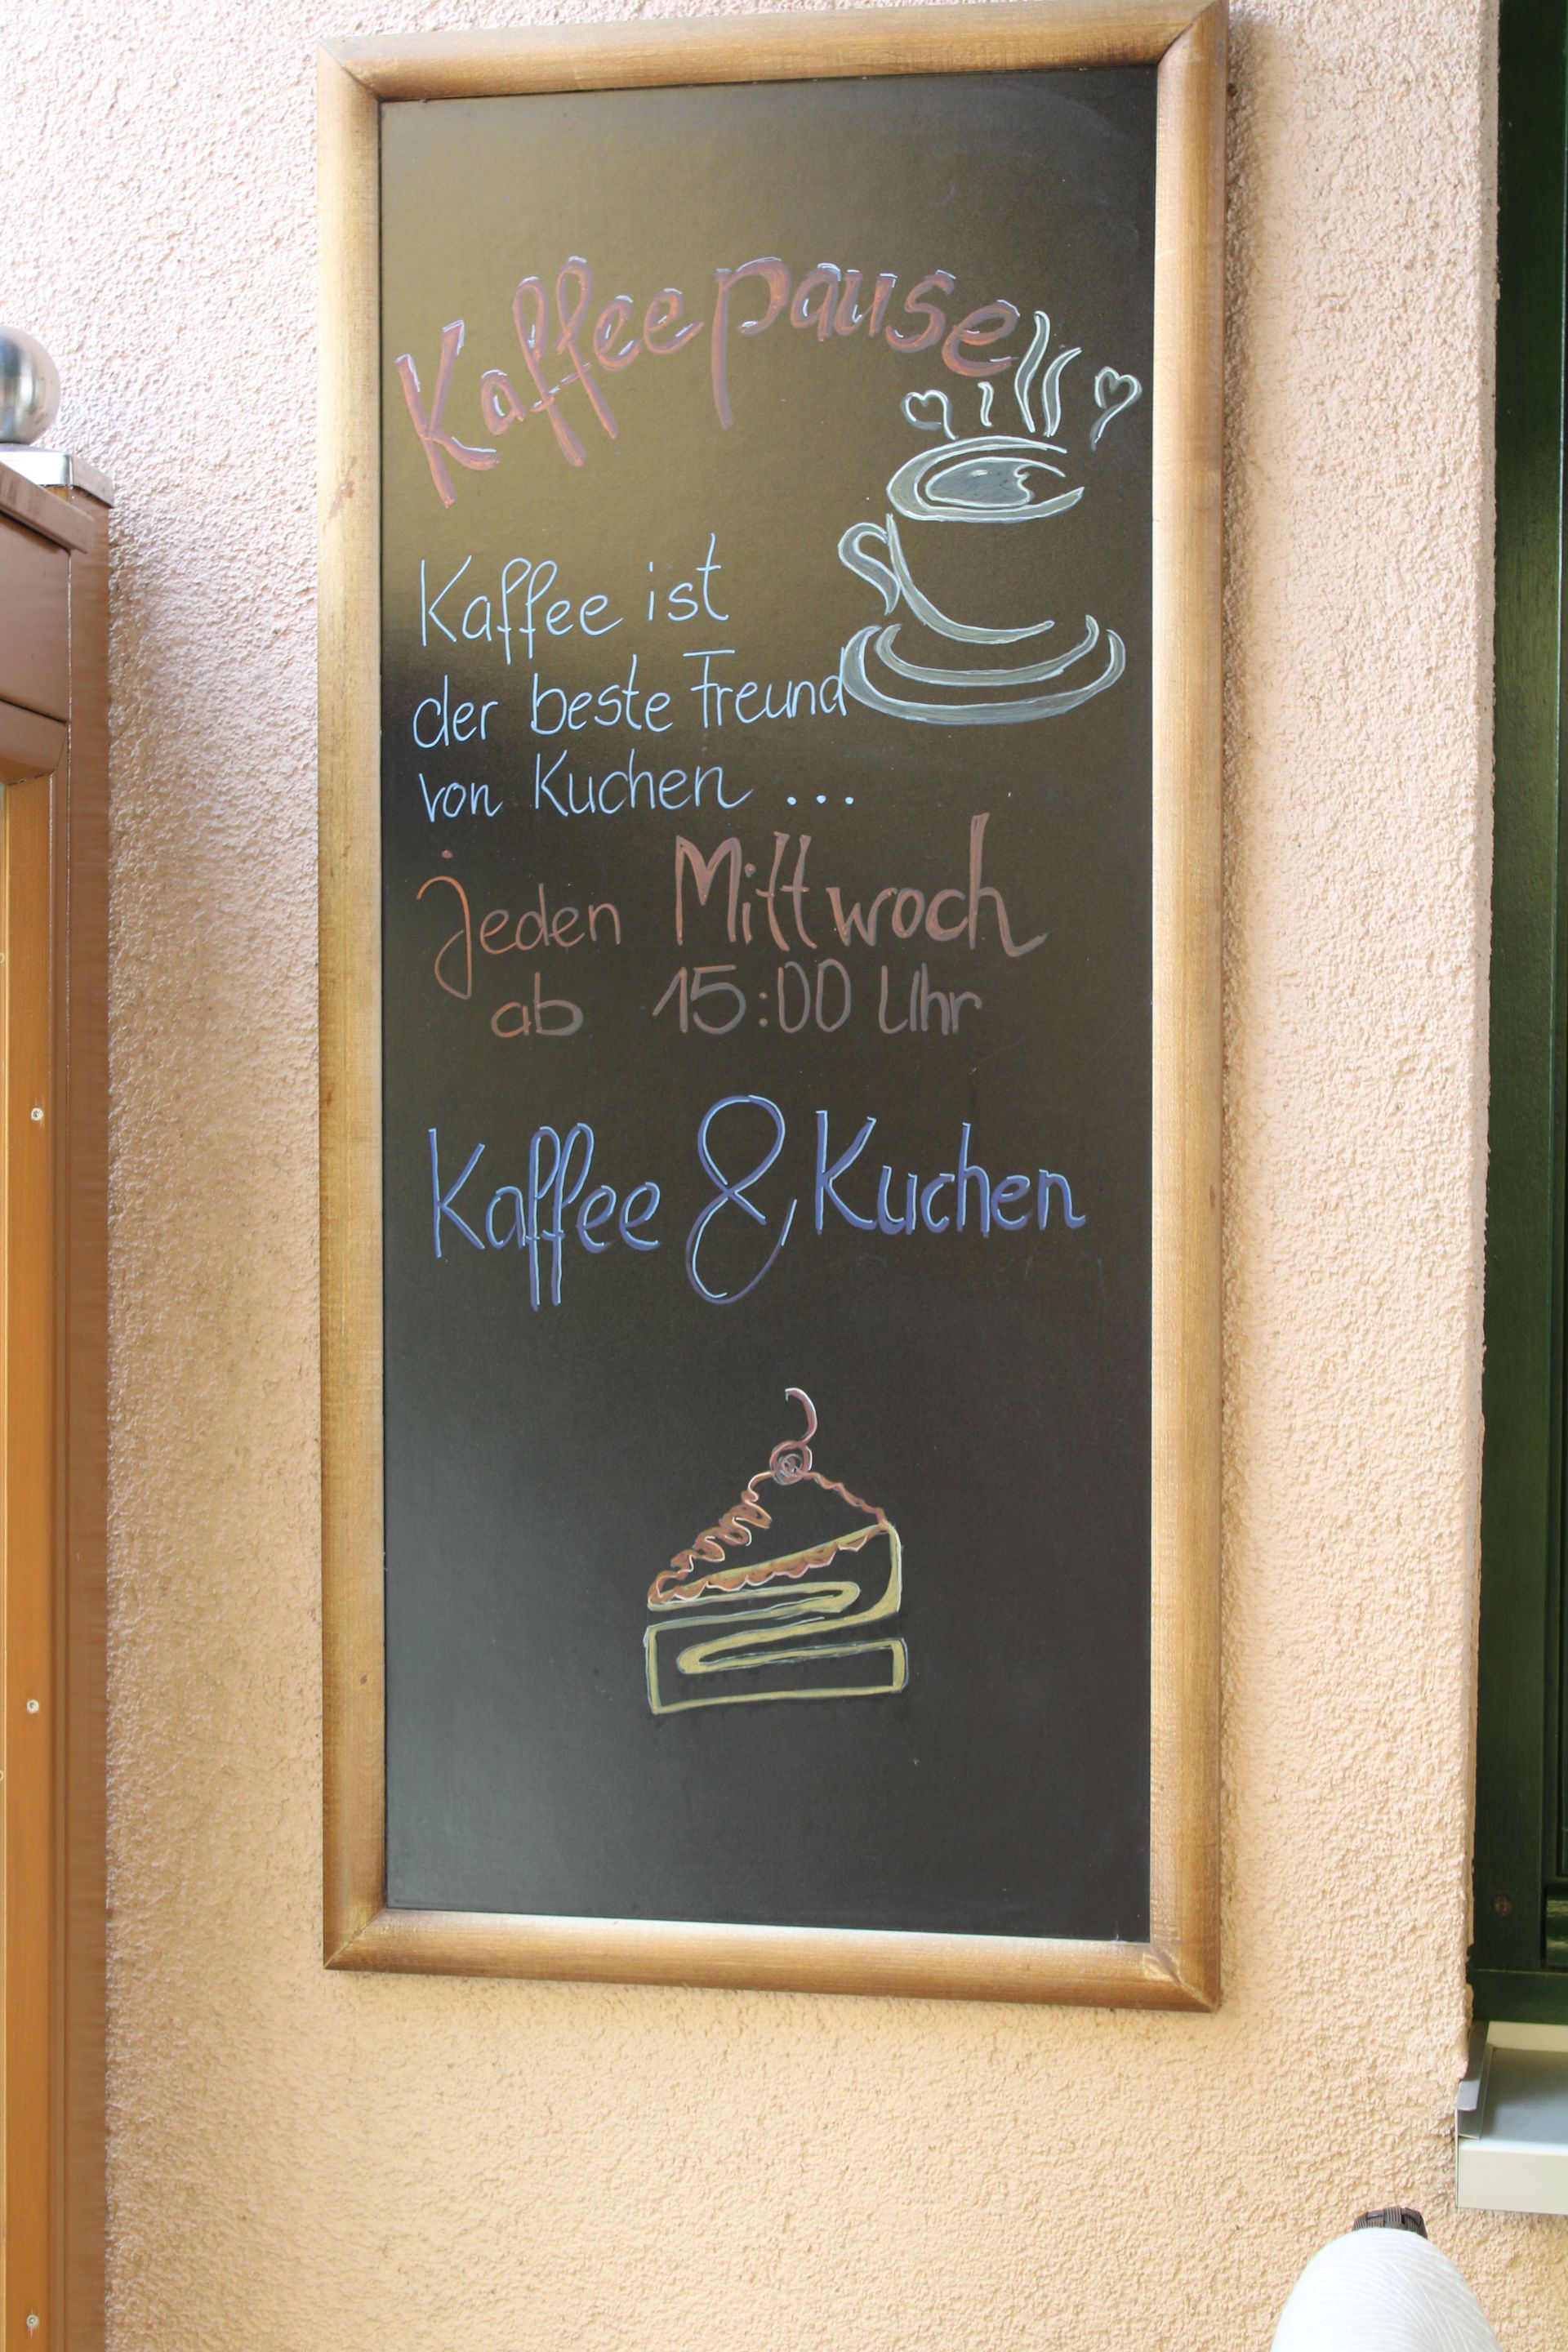 Kaffeepause
Kaffee ist
der beste Freund
von Kuchen ...
jeden Mittwoch
ab 15:00 Uhr
Kaffee & Kuchen